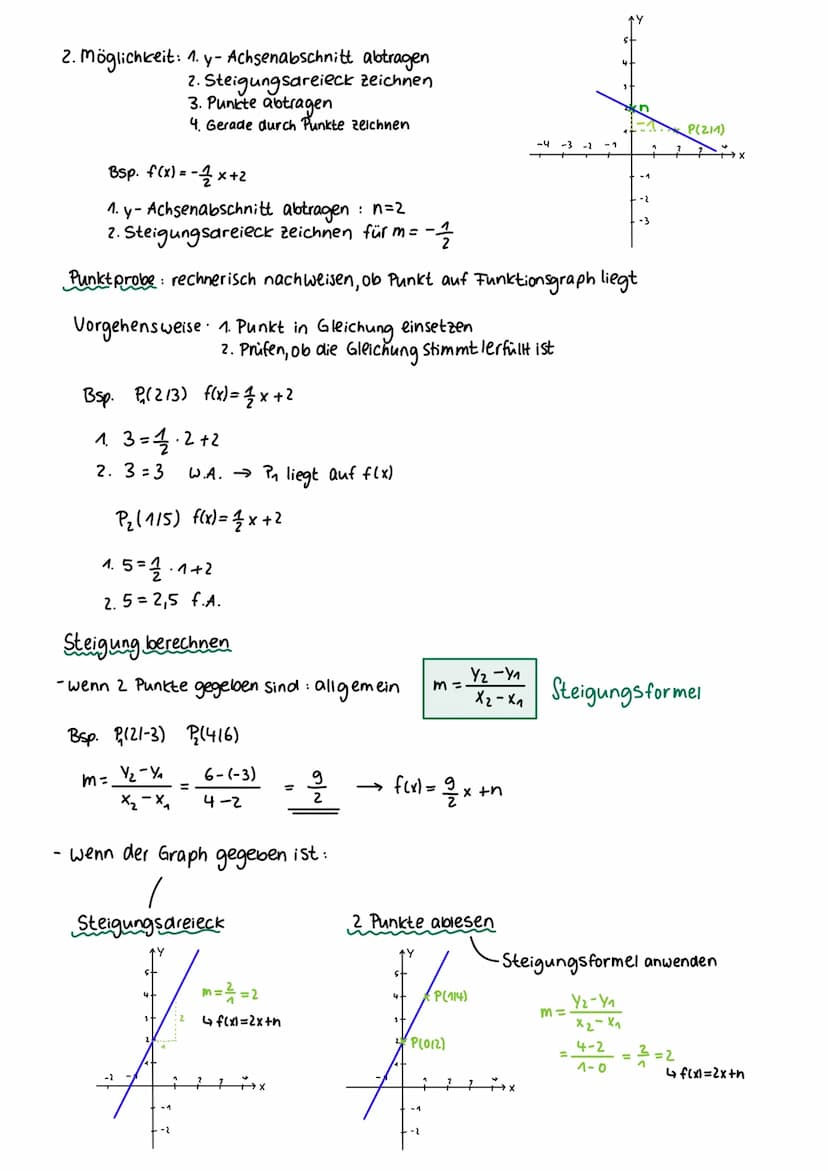 2. Möglichkeit: 1. y-Achsenabschnitt abtragen
2. Steigungsdreieck zeichnen
3. Punkte abtragen
4. Gerade durch Punkte zeichnen
Y
5
4
3
n
-1
P(2|1)
1
-4 -3 -2 -1 1 2 3 4 X
-1
-2
-3
Bsp. f(x) = -1/2 x+2
1. y-Achsenabschnitt abtragen : n=2
2. Steigungsdreieck zeichnen für m = -1/2
Punktprobe: rechnerisch nachweisen, ob Punkt auf Funktionsgraph liegt
Vorgehensweise: 1. Punkt in Gleichung einsetzen
2. Prüfen, ob die Gleichung stimmt/erfüllt ist
Bsp. P₁(2/3) f(x)=1/2 x+2
1. 3=1/2 · 2+2
2. 3=3 w.A. → P₁ liegt auf f(x)
P₂(1/5) f(x)=1/2 x+2
1. 5=1/2 · 1+2
2. 5=2,5 f.A.
Steigung berechnen
- wenn 2 Punkte gegeben sind: allgemein m = (y₂-y₁)/(x₂-x₁) Steigungsformel
Bsp. P₁(2|-3) P₂(4|6)
m = (y₂-y₁)/(x₂-x₁) = (6-(-3))/(4-2) = 9/2 → f(x) = 9/2 x +n
- wenn der Graph gegeben ist:
Steigungsdreieck
Y
5
4
3
2
1
m=2/1=2
↳ f(x)=2x+n
2
1
-2 -1 1 2 3 4 X
-1
-2
2 Punkte ablesen
Steigungsformel anwenden
Y
5
4
P(1|4)
3
P(0|2)
1
-1 1 2 3 4 X
-1
-2
m = (y₂-y₁)/(x₂-x₁)
= (4-2)/(1-0) = 2/1 = 2
↳ f(x)=2x+n